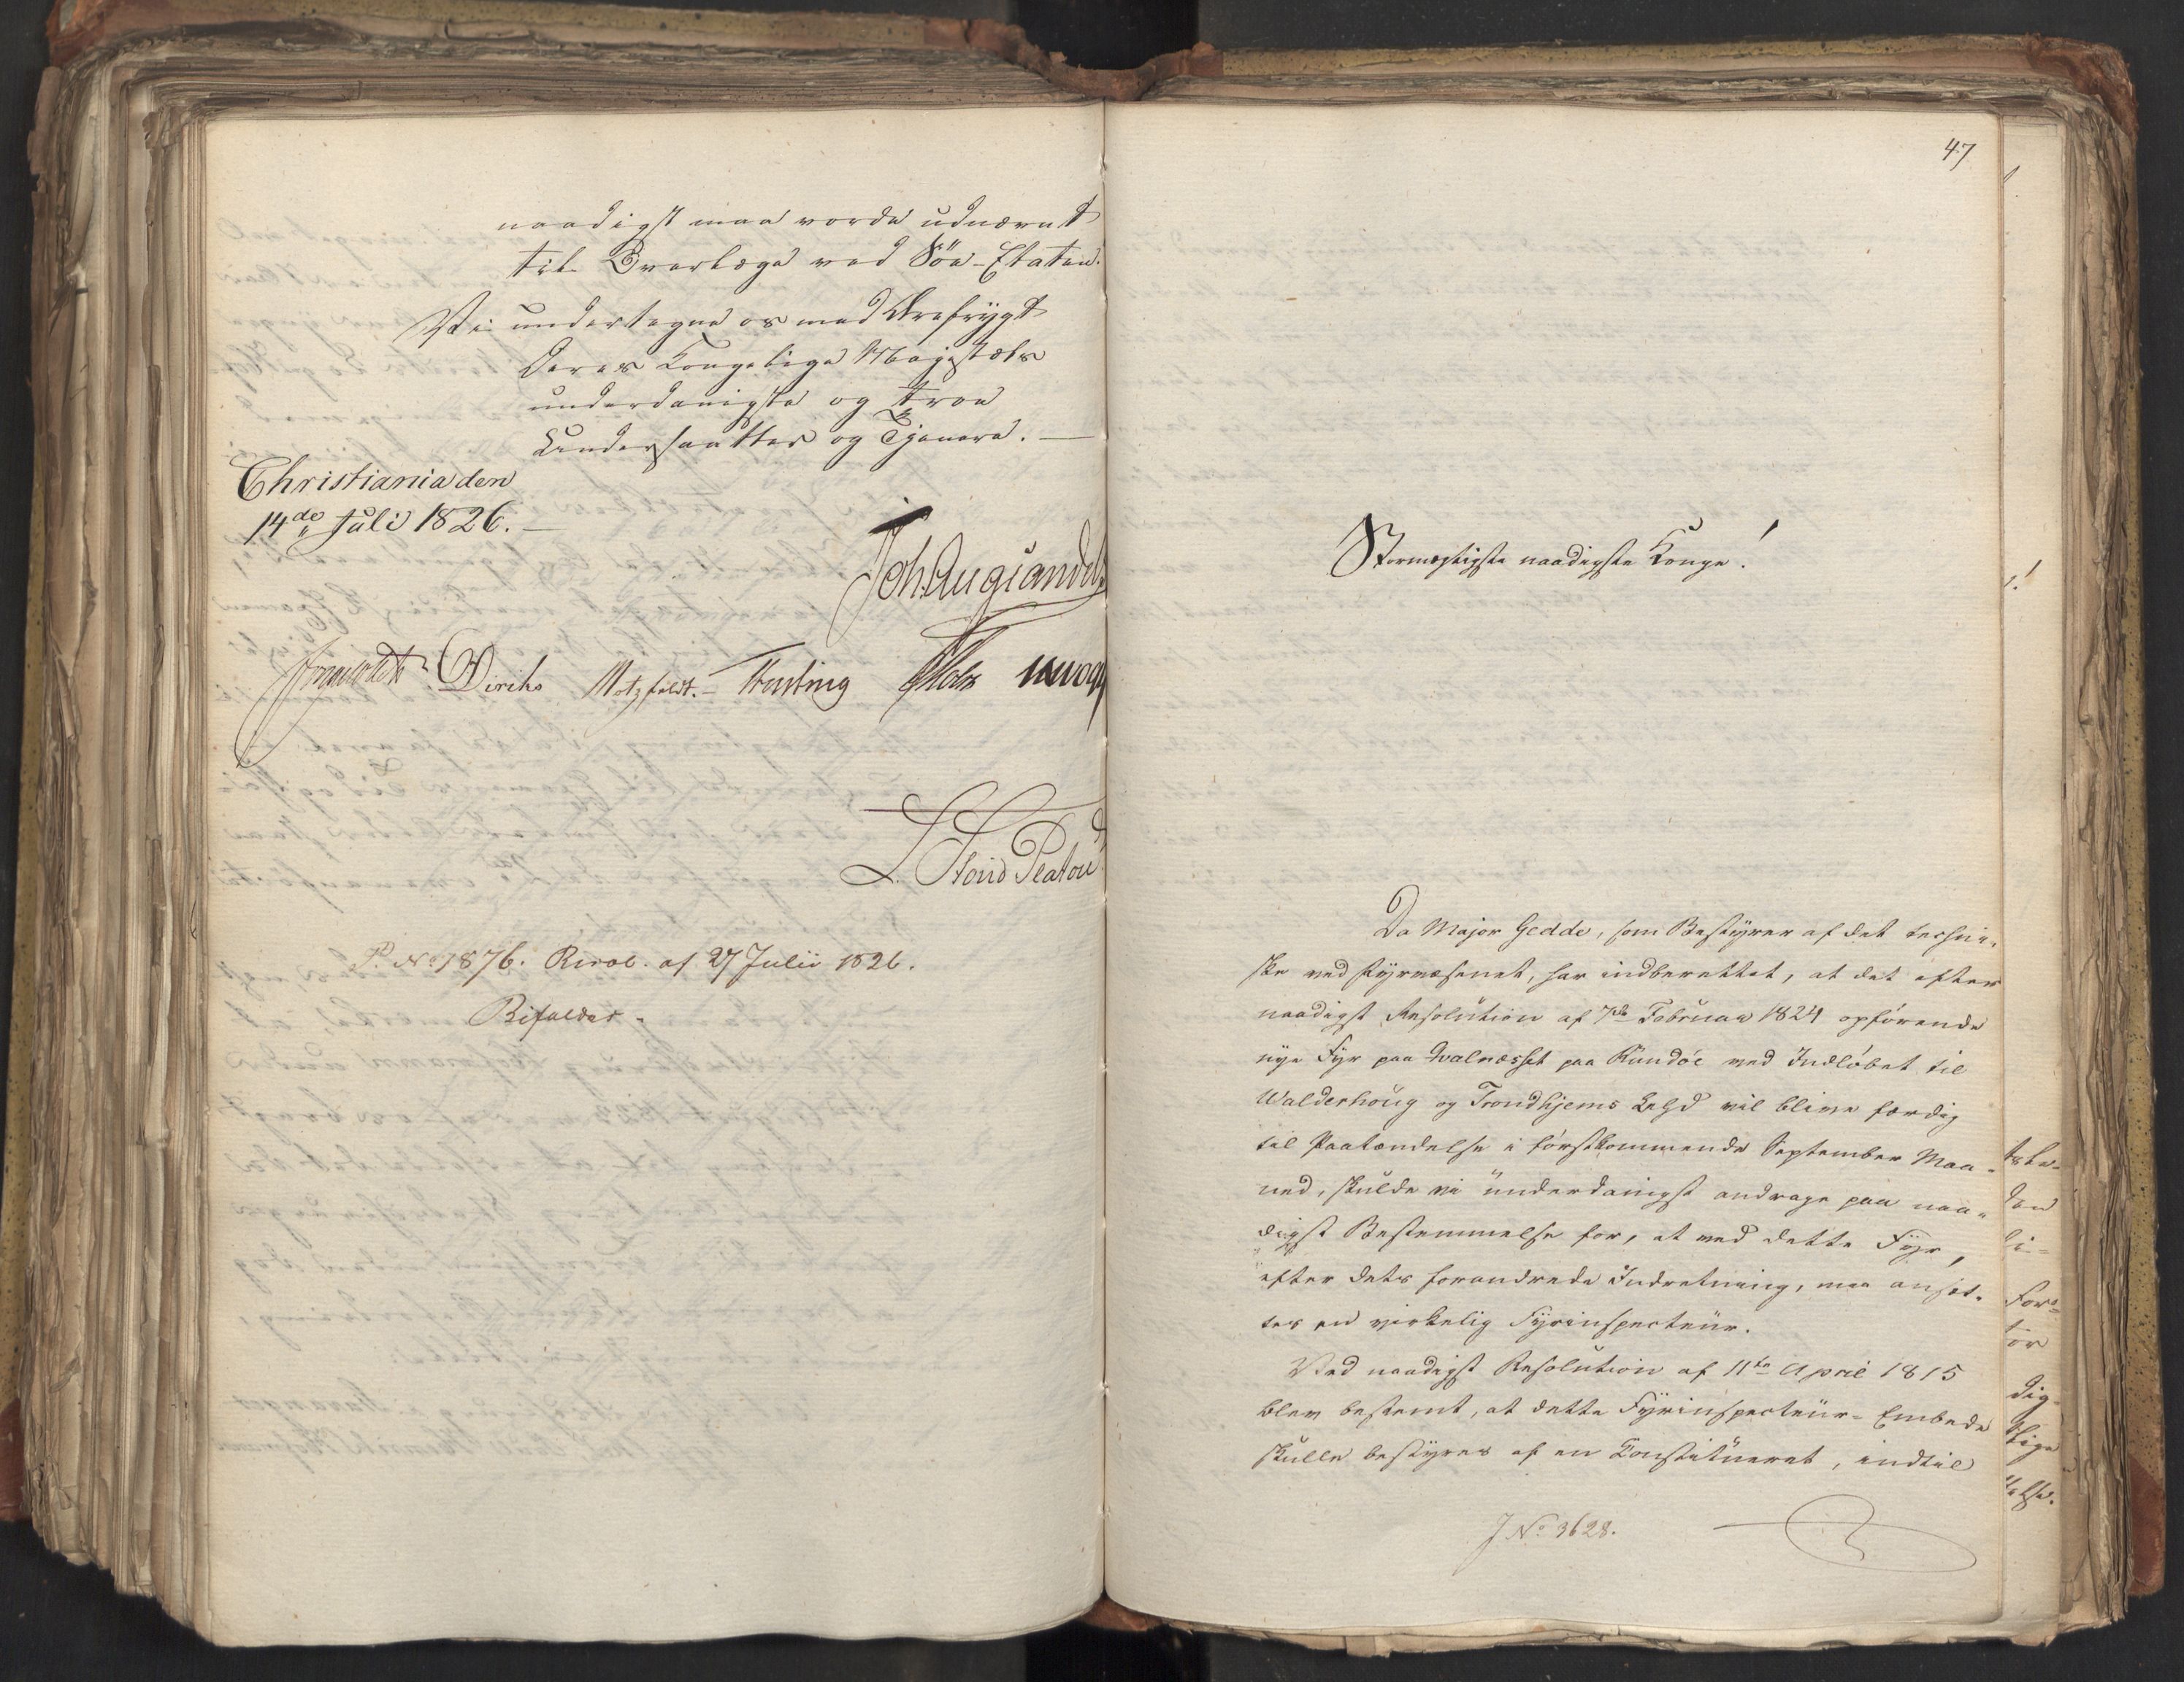 naadigst maa vorde udnævnt
til Overlæge ved Søe-Etaten.
Vi undertegne os med Ærefrygt
Deres Kongelige Majestæts
underdanigste og troe
Undersaatter og Tjenere. —
Christiania den
14de Juli 1826. —
Joh. Aug. Sandels
Diriks Motzfeldt. — Krog
L. Stoud Platou
P. No 1876. Resol. af 27 Julii 1826.
Bifaldes.
47
Stormægtigste naadigste Konge!
Da Major Gedde, som Bestyrer af det techni-
ske ved Fyrvæsenet, har indberettet, at det efter
naadigst Resolution af 7de Februar 1824 opførende
nye Fyr paa Qvalnæsset paa Rundøe ved Indløbet til
Walderhoug og Trondhjems Leed vil blive færdig
til Paatændelse i førstkommende September Maa-
ned, skulde vi underdanigst andrage paa naa-
digst Bestemmelse for, at ved dette Fyr,
efter dets forandrede Indretning, maa ansæt-
tes en virkelig Fyrinspecteur.
Ved naadigst Resolution af 11te April 1815
blev bestemt, at dette Fyrinspecteur-Embede
skulle bestyres af en Constitueret, indtil
J No 3628.